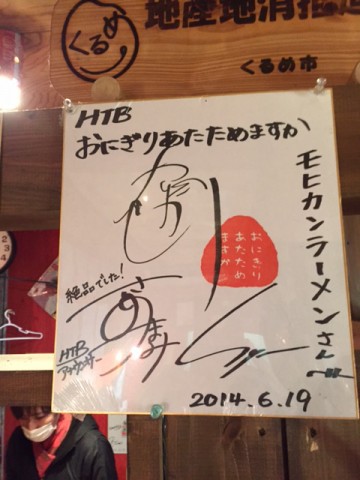 くるめ
地産地消推進
くるめ市
HTB
おにぎりあたためますか
モヒカンラーメンさん江
おにぎり
あたため
ますか
絶品でした!
HTB
アナウンサー
2014.6.19
2
3
4